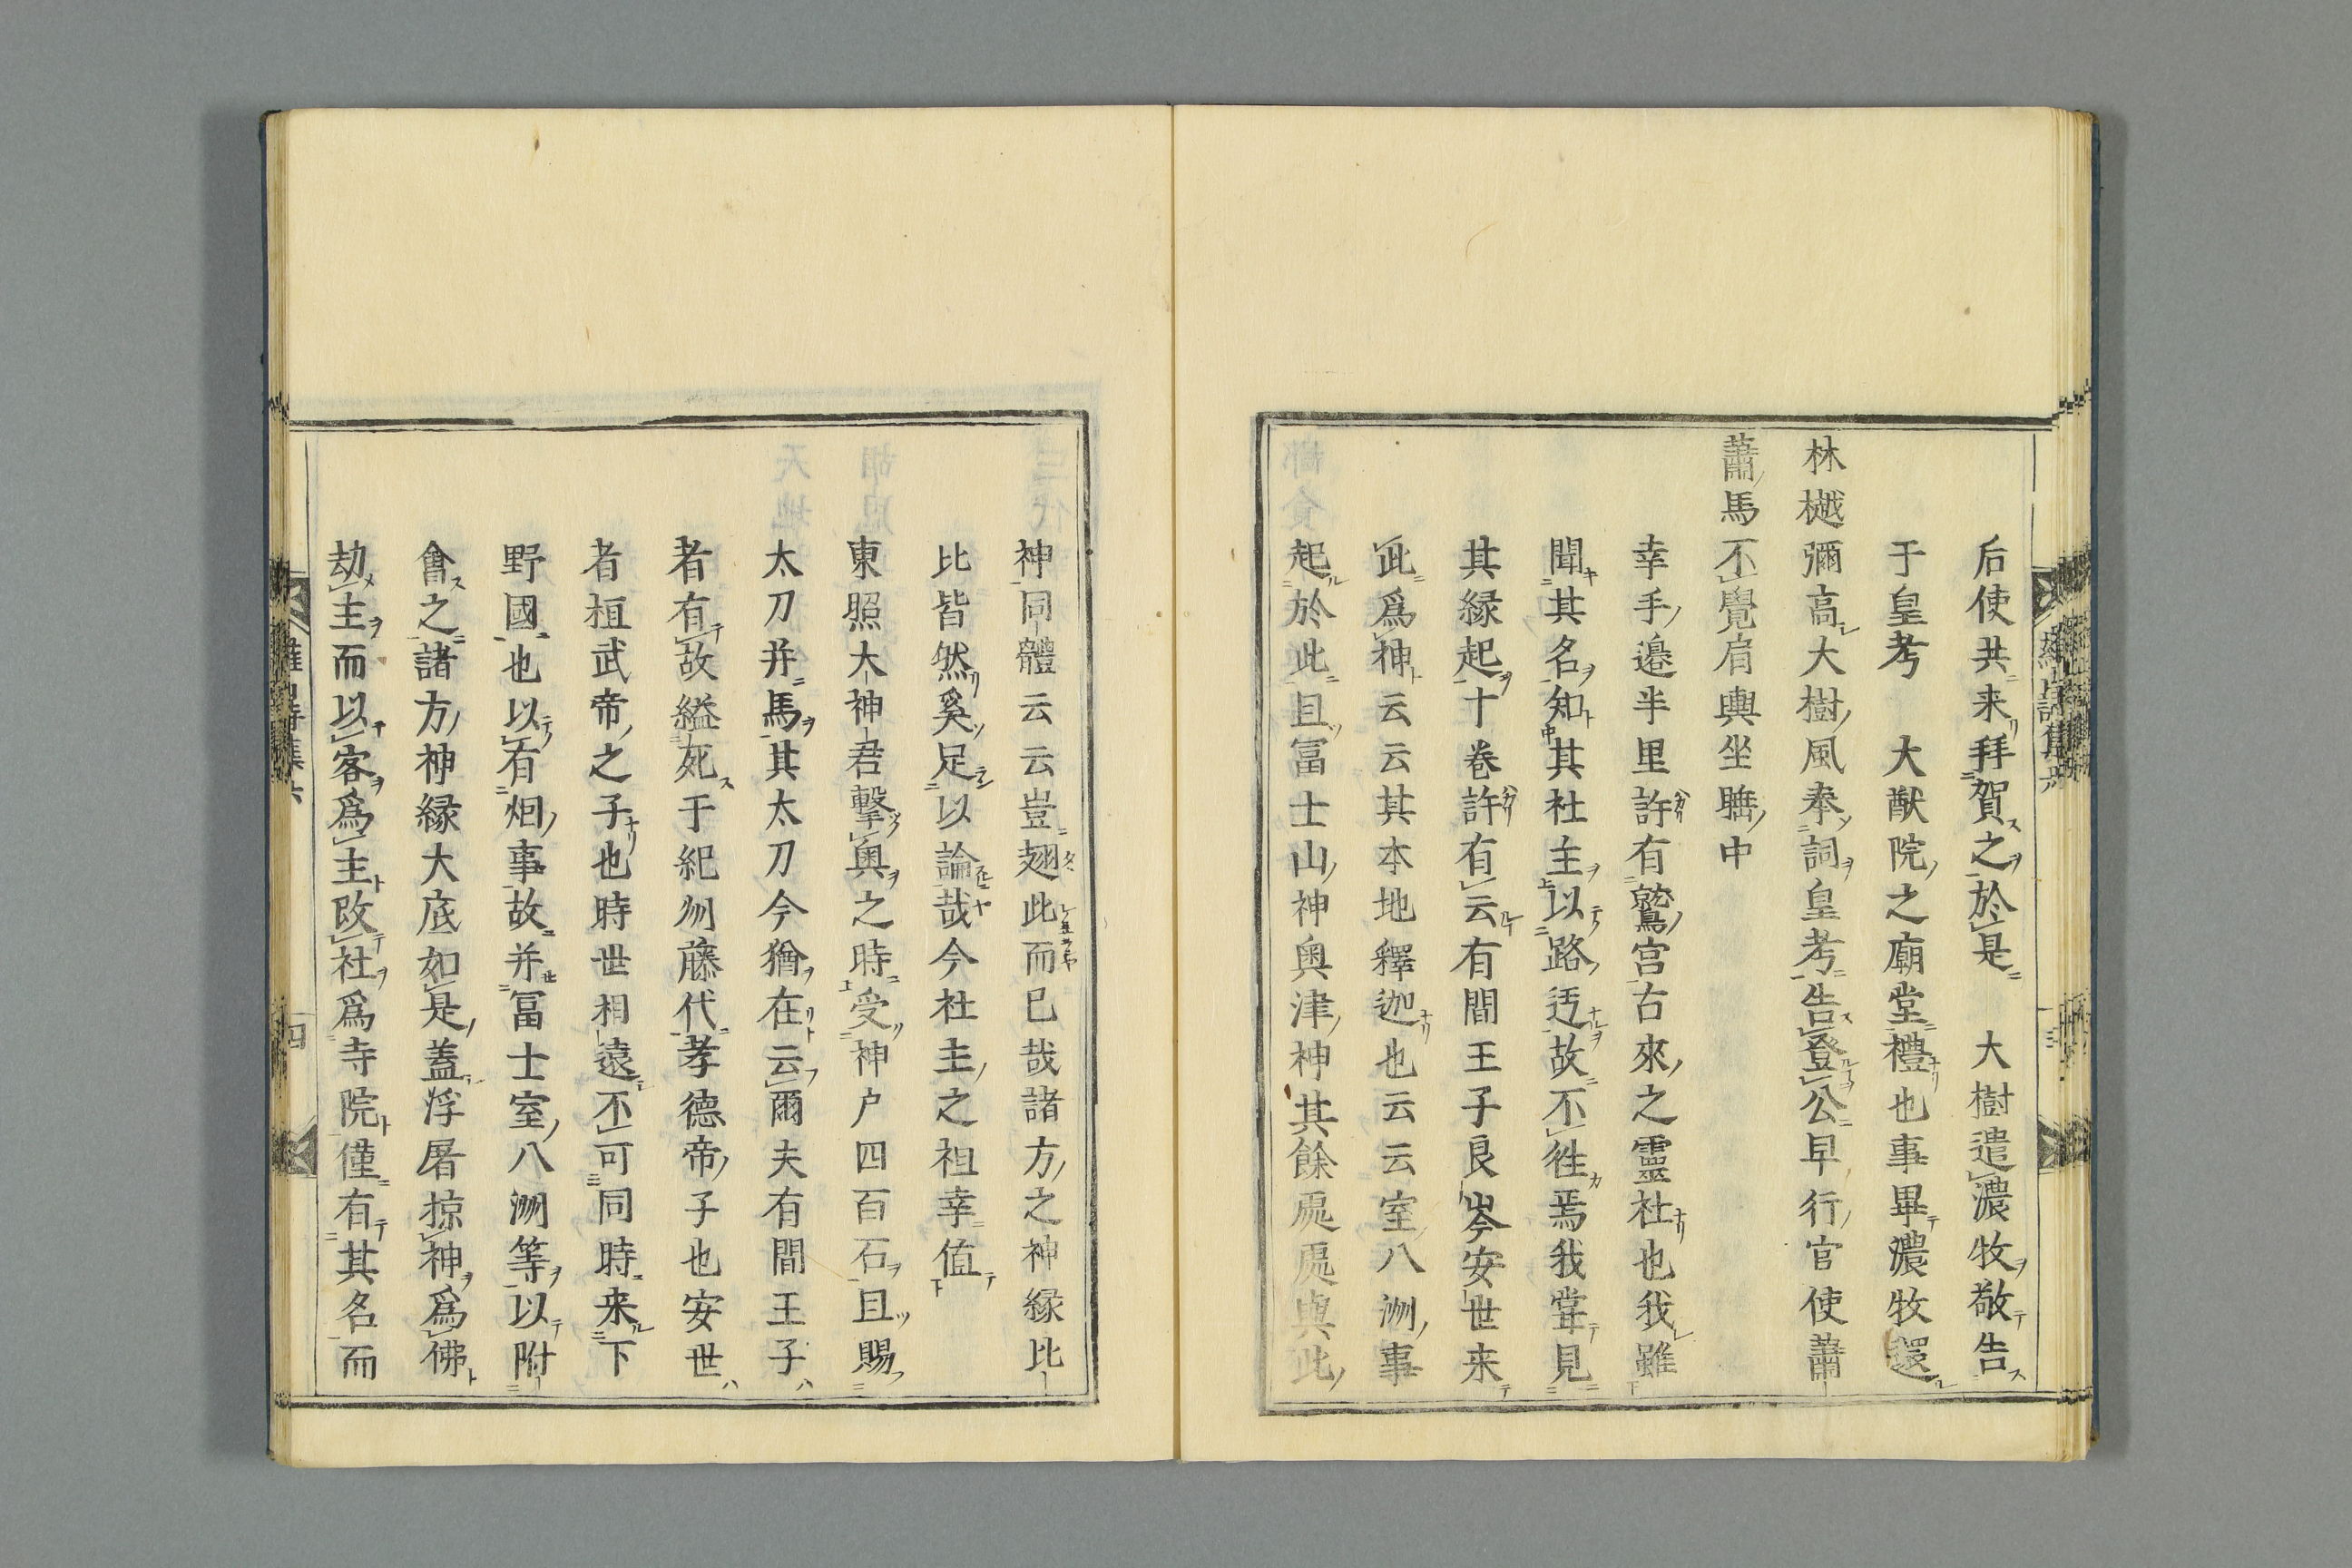 后使共来拜賀之於是　大樹遣濃牧敬告
于皇考　大猷院之廟堂禮也事畢濃牧還
林樾彌高大樹風奉詞皇考告登公早行官使蕭
蕭馬不覺肩輿坐睡中
幸手邉半里許有鷲宮古來之靈社也我雖
聞其名知其社主以路迃故不徃焉我甞見
其縁起十巻許有云有間王子良岑安世来
此爲神云云其本地釋迦也云云室八洲事
起於此且冨士山神奥津神其餘處處與此
神同體云云豈翅此而已哉諸方之神縁比
比皆然奚足以論哉今社主之祖幸値
東照大神君撃奥之時受神户四百石且賜
太刀并馬其太刀今猶在云爾夫有間王子
者有故縊死于紀州藤代孝德帝子也安世
者桓武帝之子也時世相遠不可同時来下
野國也以有烟事故并冨士室八洲等以附
會之諸方神縁大底如是蓋浮屠掠神爲佛
劫主而以客爲主改社爲寺院僅有其名而
四